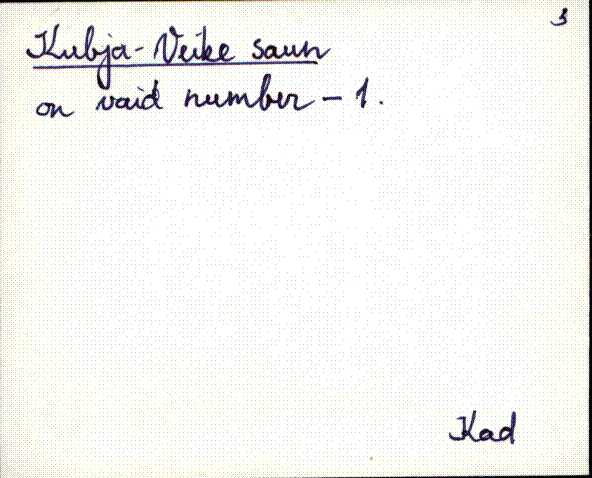 3
Kubja-Veike saun
on vaid number – 1.
Kad